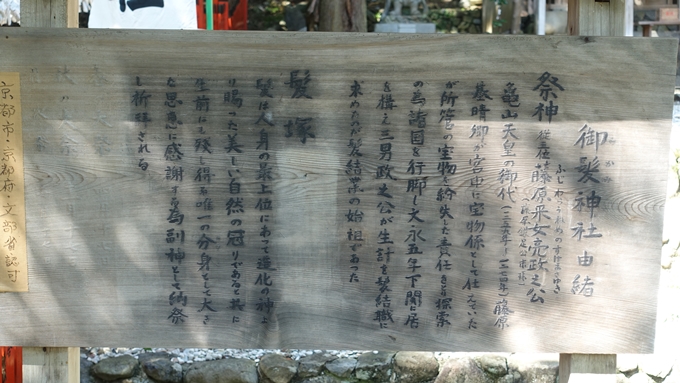 御髪神社由緒
みかみ
ふじわらうねめの
祭神 従三位藤原釆女亮政之公
亀山天皇の御代
藤原
基晴卿が宮中の宝物係として仕えていた
が所管の宝物を紛失した責任を
探索
の為諸国を行脚し文永五年下関に居
を構え三男政之公が生計を髪結職に
求めたのが髪結業の始祖であった
髪塚
髪は人身の最上位にあって造化の神よ
り賜った美しい自然の冠りであると共に
生前にも残し得る唯一の分身として大き
な恩恵に感謝する為副神として納祭
し祈拝される
京都市・京都府・文部省認可